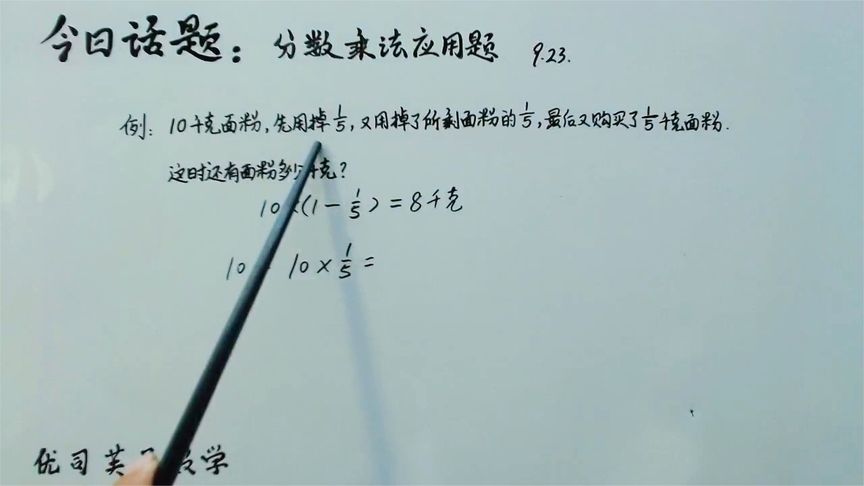 今日话题：分数乘法应用题 9.23.
例：10千克面粉,先用掉1/5,又用掉了所剩面粉的1/5,最后又购买了1/5千克面粉.
这时还有面粉多少千克?
10×(1-1/5)=8千克
10 - 10×1/5=
优司芙 数学